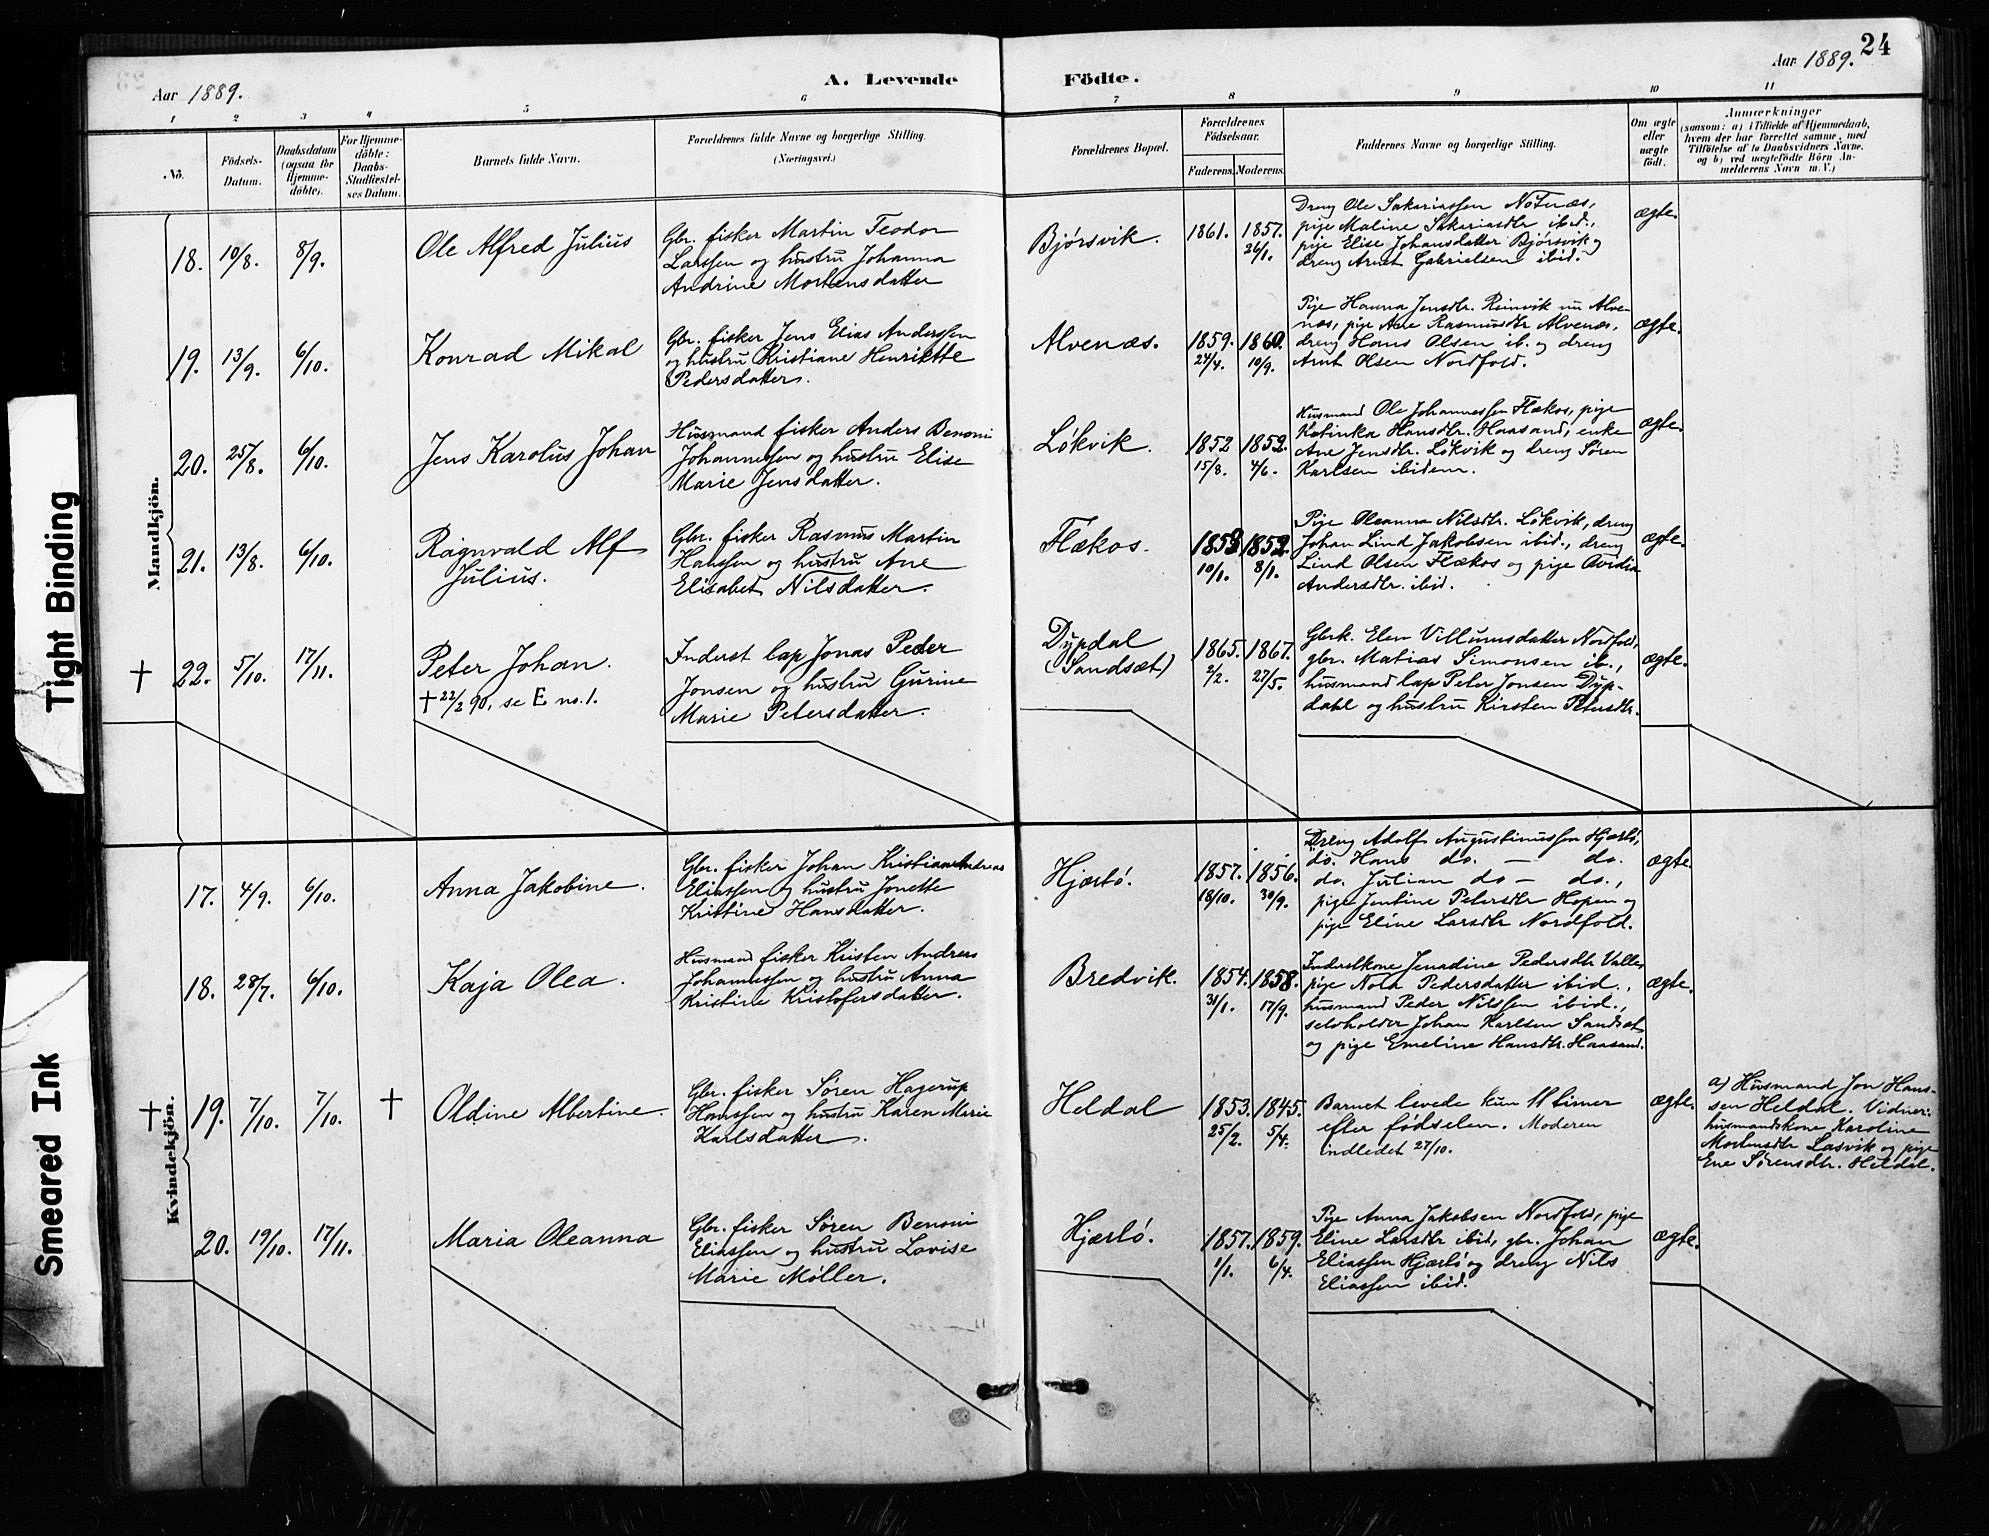 24
Aar 1889.
A. Levende
Födte.
Aar 1889.
1
2
3
4
5
6
7
8
9
10
11
No.
Födsels-
Datum.
Daabsdatum
(ogsaa for
Hjemme-
döbte).
For Hjemme-
döbte:
Daabs-
Stadfæstel-
ses Datum.
Barnets fulde Navn.
Forældrenes fulde Navne og borgerlige Stilling.
(Næringsvei.)
Forældrenes Bopæl.
Forældrenes
Födselsaar.
Faderens.
Moderens.
Faddernes Navne og borgerlige Stilling.
Om ægte
eller
uægte
födt.
Anmærkninger
(saasom: a) i Tilfælde af Hjemmedaab,
hvem der har forrettet samme, med
Tilföielse af to Daabsvidners Navne,
og b) ved uægtefödte Börn An-
melderens Navn m. V.)
Mandkjön.
18. 10/8. 8/9.
Ole Alfred Julius
Gbr. fisker Martin Teodor
Larssen og hustru Johanna
Andrine Mortensdatter
Bjørsvik.
1861. 1857.
26/1.
Dreng Ole Sakariassen Notnæs,
pige Maline Sakariasdtr ibid.,
pige Elise Johansdatter Bjørsvik og
dreng Arnt Gabrielsen ibid.
ægte.
19. 13/9. 6/10.
Konrad Mikal
Gbr. fisker Jens Elias Anderssen
og hustru Kristiane Henriette
Pedersdatter.
Alvenæs.
1859. 1860.
24/4. 10/9.
Pige Hanna Jensdtr. Reinvik nu Alve-
næs, pige Ane Rasmusdtr Alvenæs,
dreng Hans Olsen ib. og dreng
Arnt Olsen Nordfold.
ægte.
20. 25/8. 6/10.
Jens Karolus Johan
Husmand fisker Anders Benoni
Johannesen og hustru Elise
Marie Jensdatter.
Løkvik.
1852 1852.
15/8. 4/6.
Husmand Ole Johannessen Flækos, pige
Katinka Hansdtr. Haasand, enke
Ane Jensdtr. Løkvik og dreng Søren
Karlsen ibidem.
ægte.
21. 13/8. 6/10.
Ragnvald Alf
Julius.
Gbr. fisker Rasmus Martin
Hanssen og hustru Ane
Elisabet Nilsdatter.
Flækos.
1853 1852.
10/1. 8/1.
Pige Oleanna Nilsdtr. Løkvik, dreng
Johan Lind Jakobsen ibid., dreng
Lind Olsen Flækos og pige Ovidia
Andersdtr. ibid.
ægte.
† 22. 5/10. 17/11.
Peter Johan.
† 22/2 90, se E no. 1.
Inderst lap Jonas Peder
Jonsen og hustru Gurine
Marie Petersdatter.
Dypdal
(Sandsæt)
1865. 1867.
2/2. 27/5.
Gbrk. Elen Villumsdatter Nordfold,
gbr. Matias Simonsen ib.,
husmand lap Peter Jonsen Dyp-
dahl og hustru Kirsten Petersdtr.
ægte.
Kvindekjön.
17. 4/9. 6/10.
Anna Jakobine.
Gbr. fisker Johan Kristian Andreas
Eliassen og hustru Jonette
Kristine Hansdatter.
Hjærtø.
1857. 1856.
18/10. 30/9.
Dreng Adolf Augustinussen Hjærtø,
do. Hans do. — do.
do. Julian do — do.,
pige Jentine Petersdtr Hopen og
pige Eline Larsdtr Nordfold.
ægte
18. 28/7. 6/10.
Kaja Olea.
Husmand fisker Kristen Andreas
Johannessen og hustru Anna
Kristine Kristofersdatter.
Bredvik.
1854. 1858.
31/1. 17/9.
Inderstkone Jenadine Pedersdtr Valle,
pige Nola Pedersdatter ibid.,
husmand Peder Nilssen ibid.,
selvholder Johan Karlsen Sandsæt
og pige Emeline Hansdtr. Haasand.
ægte.
† 19. 7/10. 7/10. †
Oldine Albertine.
Gbr. fisker Søren Hagerup
Hanssen og hustru Karen Marie
Karlsdatter.
Heldal
1853. 1845.
25/2. 5/4.
Barnet levede kun 11 timer
efter fødselen. Moderen
indledet 27/10.
ægte.
a) Husmand Jon Hans-
sen Heldal. Vidner:
husmandskone Karoline
Mortensdtr Lasvik og pige
Ene Sørensdtr. Heldal.
20. 19/10. 17/11.
Maria Oleanna
Gbr. fisker Søren Benoni
Eliassen og hustru Lovise
Marie Møller.
Hjærtø.
1857. 1859.
1/1. 6/4.
Pige Anna Jakobsen Nordfold, pige
Eline Larsdtr ibid, gbr. Johan
Eliassen Hjærtø og dreng Nils
Eliassen ibid.
ægte.
Tight Binding
Smeared Ink